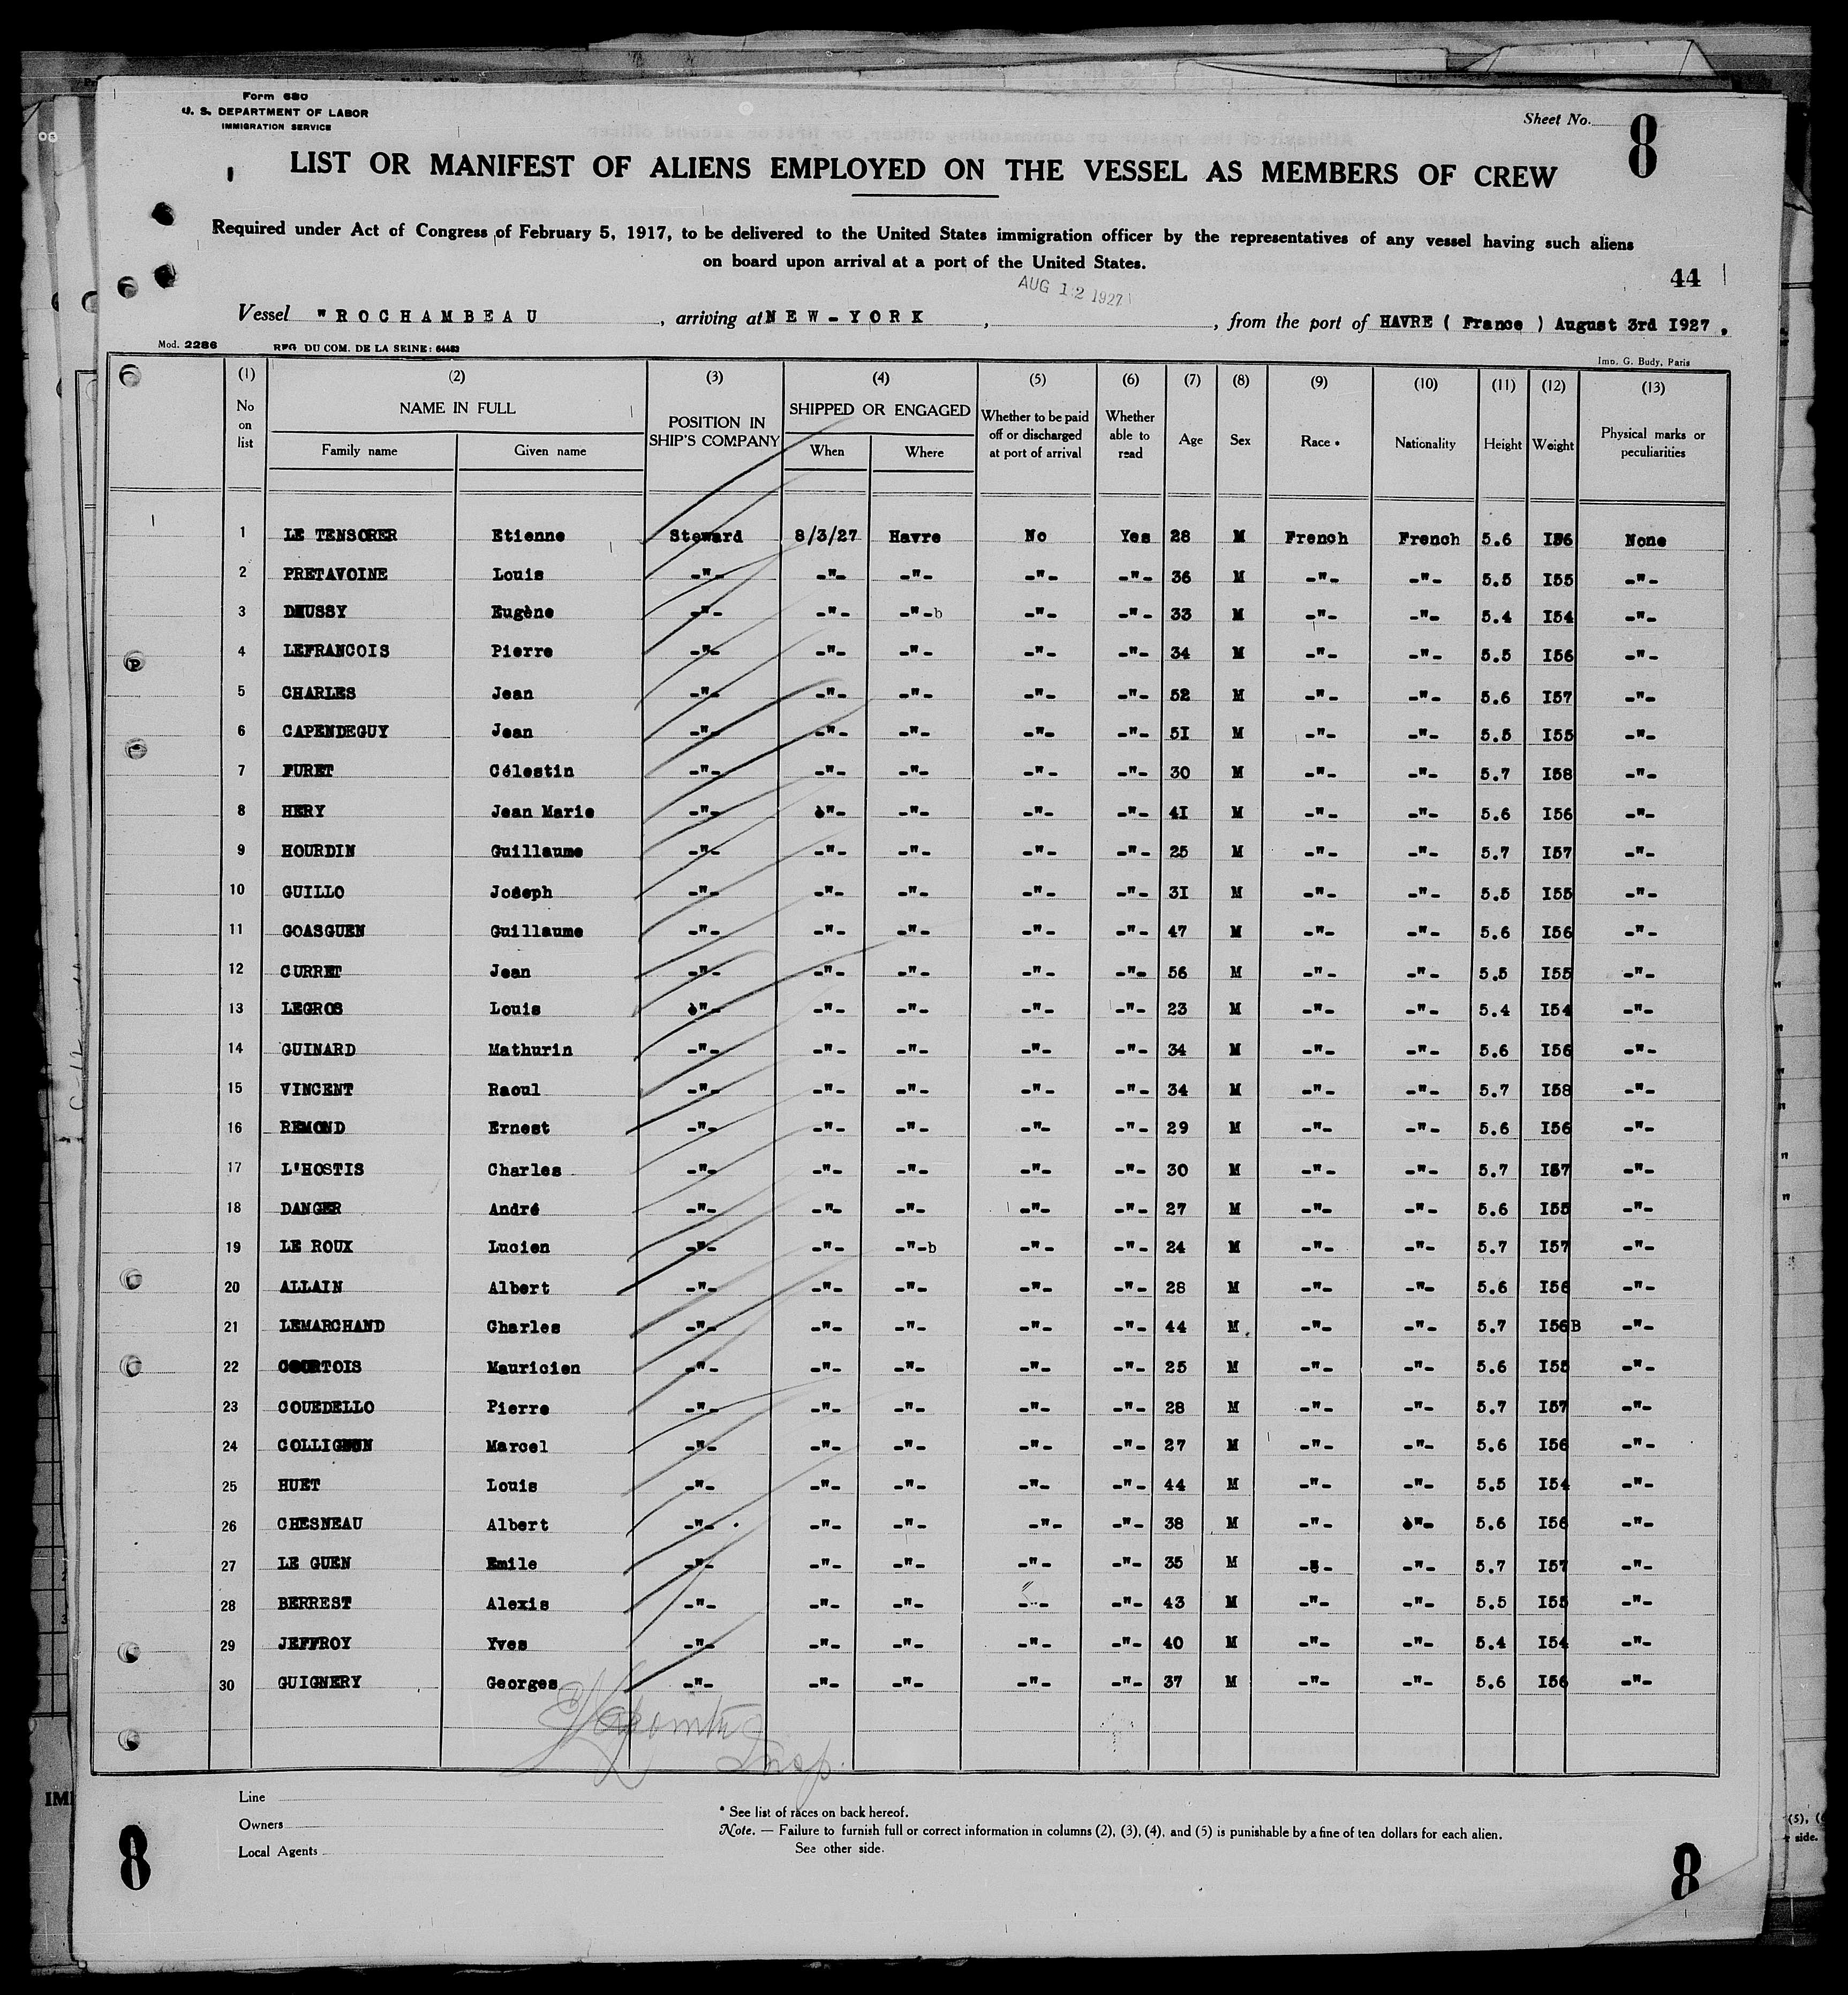 Form 680
U. S. DEPARTMENT OF LABOR
IMMIGRATION SERVICE
Sheet No. 8
LIST OR MANIFEST OF ALIENS EMPLOYED ON THE VESSEL AS MEMBERS OF CREW
Required under Act of Congress of February 5, 1917, to be delivered to the United States immigration officer by the representatives of any vessel having such aliens
on board upon arrival at a port of the United States.
44
AUG 12 1927
Vessel "ROCHAMBEAU, arriving at NEW-YORK, , from the port of HAVRE ( France ) August 3rd I927.
Mod. 2286 REG DU COM. DE LA SEINE: 64483 Imp. G. Budy, Paris
(1) (2) (3) (4) (5) (6) (7) (8) (9) (10) (11) (12) (13)
No on list NAME IN FULL Family name Given name POSITION IN SHIP'S COMPANY SHIPPED OR ENGAGED When Where Whether to be paid off or discharged at port of arrival Whether able to read Age Sex Race * Nationality Height Weight Physical marks or peculiarities
1 LE TENSORER Etienne Steward 8/3/27 Havre No Yes 28 M French French 5.6 I56 None
2 PRETAVOINE Louis -"- -"- -"- -"- -"- 36 M -"- -"- 5.5 I55 -"-
3 DEUSSY Eugène -"- -"- -"-b -"- -"- 33 M -"- -"- 5.4 I54 -"-
4 LEFRANCOIS Pierre -"- -"- -"- -"- -"- 34 M -"- -"- 5.5 I56 -"-
5 CHARLES Jean -"- -"- -"- -"- -"- 52 M -"- -"- 5.6 I57 -"-
6 CAPENDEGUY Jean -"- -"- -"- -"- -"- 5I M -"- -"- 5.5 I55 -"-
7 FURET Célestin -"- -"- -"- -"- -"- 30 M -"- -"- 5.7 I58 -"-
8 HERY Jean Marie -"- -"- -"- -"- -"- 4I M -"- -"- 5.6 I56 -"-
9 HOURDIN Guillaume -"- -"- -"- -"- -"- 25 M -"- -"- 5.7 I57 -"-
10 GUILLO Joseph -"- -"- -"- -"- -"- 3I M -"- -"- 5.5 I55 -"-
11 GOASGUEN Guillaume -"- -"- -"- -"- -"- 47 M -"- -"- 5.6 I56 -"-
12 CURRET Jean -"- -"- -"- -"- -"- 56 M -"- -"- 5.5 I55 -"-
13 LEGROS Louis -"- -"- -"- -"- -"- 23 M -"- -"- 5.4 I54 -"-
14 GUINARD Mathurin -"- -"- -"- -"- -"- 34 M -"- -"- 5.6 I56 -"-
15 VINCENT Raoul -"- -"- -"- -"- -"- 34 M -"- -"- 5.7 I58 -"-
16 REMOND Ernest -"- -"- -"- -"- -"- 29 M -"- -"- 5.6 I56 -"-
17 L'HOSTIS Charles -"- -"- -"- -"- -"- 30 M -"- -"- 5.7 I57 -"-
18 DANGER André -"- -"- -"- -"- -"- 27 M -"- -"- 5.6 I55 -"-
19 LE ROUX Lucien -"- -"- -"-b -"- -"- 24 M -"- -"- 5.7 I57 -"-
20 ALLAIN Albert -"- -"- -"- -"- -"- 28 M -"- -"- 5.6 I56 -"-
21 LEMARCHAND Charles -"- -"- -"- -"- -"- 44 M -"- -"- 5.7 I56B -"-
22 COURTOIS Mauricien -"- -"- -"- -"- -"- 25 M -"- -"- 5.6 I55 -"-
23 COUEDELLO Pierre -"- -"- -"- -"- -"- 28 M -"- -"- 5.7 I57 -"-
24 COLLIGNON Marcel -"- -"- -"- -"- -"- 27 M -"- -"- 5.6 I56 -"-
25 HUET Louis -"- -"- -"- -"- -"- 44 M -"- -"- 5.5 I54 -"-
26 CHESNEAU Albert -"- -"- -"- -"- -"- 38 M -"- -"- 5.6 I56 -"-
27 LE GUEN Emile -"- -"- -"- -"- -"- 35 M -"- -"- 5.7 I57 -"-
28 BERREST Alexis -"- -"- -"- -"- -"- 43 M -"- -"- 5.5 I55 -"-
29 JEFFROY Yves -"- -"- -"- -"- -"- 40 M -"- -"- 5.4 I54 -"-
30 GUIGNERY Georges -"- -"- -"- -"- -"- 37 M -"- -"- 5.6 I56 -"-
Insp.
Line
Owners
Local Agents
* See list of races on back hereof.
Note. — Failure to furnish full or correct information in columns (2), (3), (4), and (5) is punishable by a fine of ten dollars for each alien.
See other side.
8 8